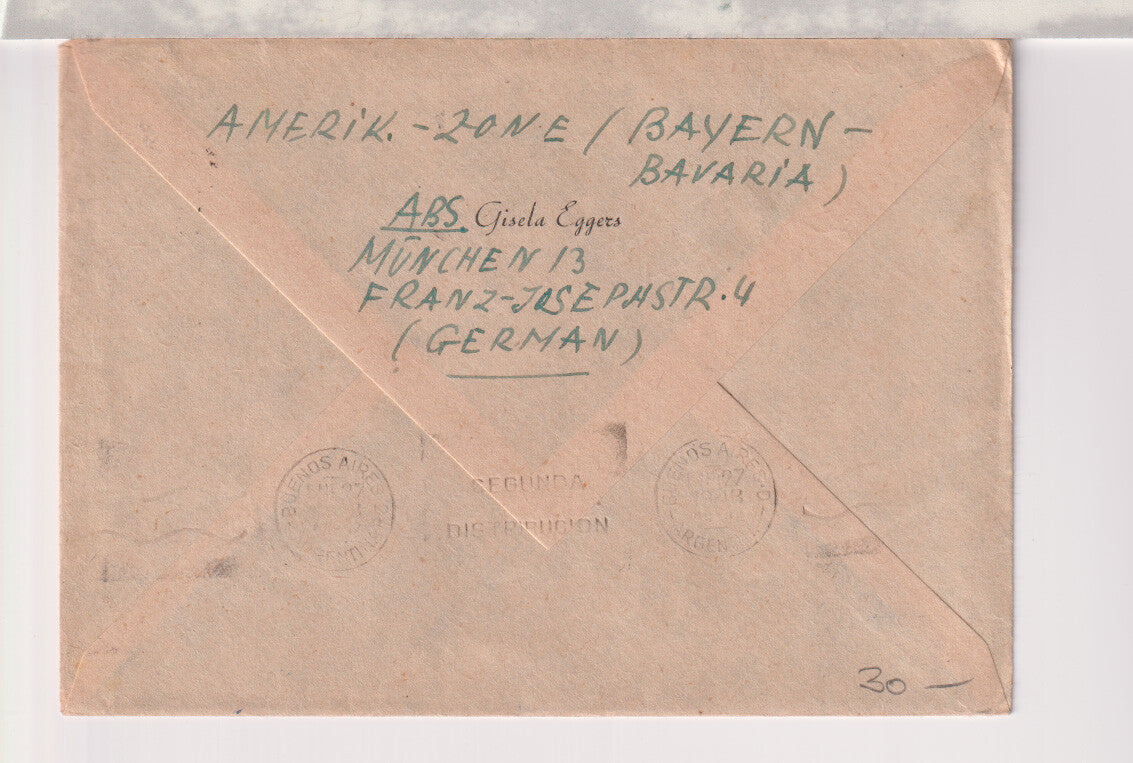 AMERIK. - ZONE / (BAYERN -
BAVARIA)
ABS. Gisela Eggers
MÜNCHEN 13
FRANZ-JOSEPHSTR. 4
(GERMAN)
BUENOS AIRES
SEGUNDA
DISTRIBUCION
BUENOS AIRES
ARGEN
30 —